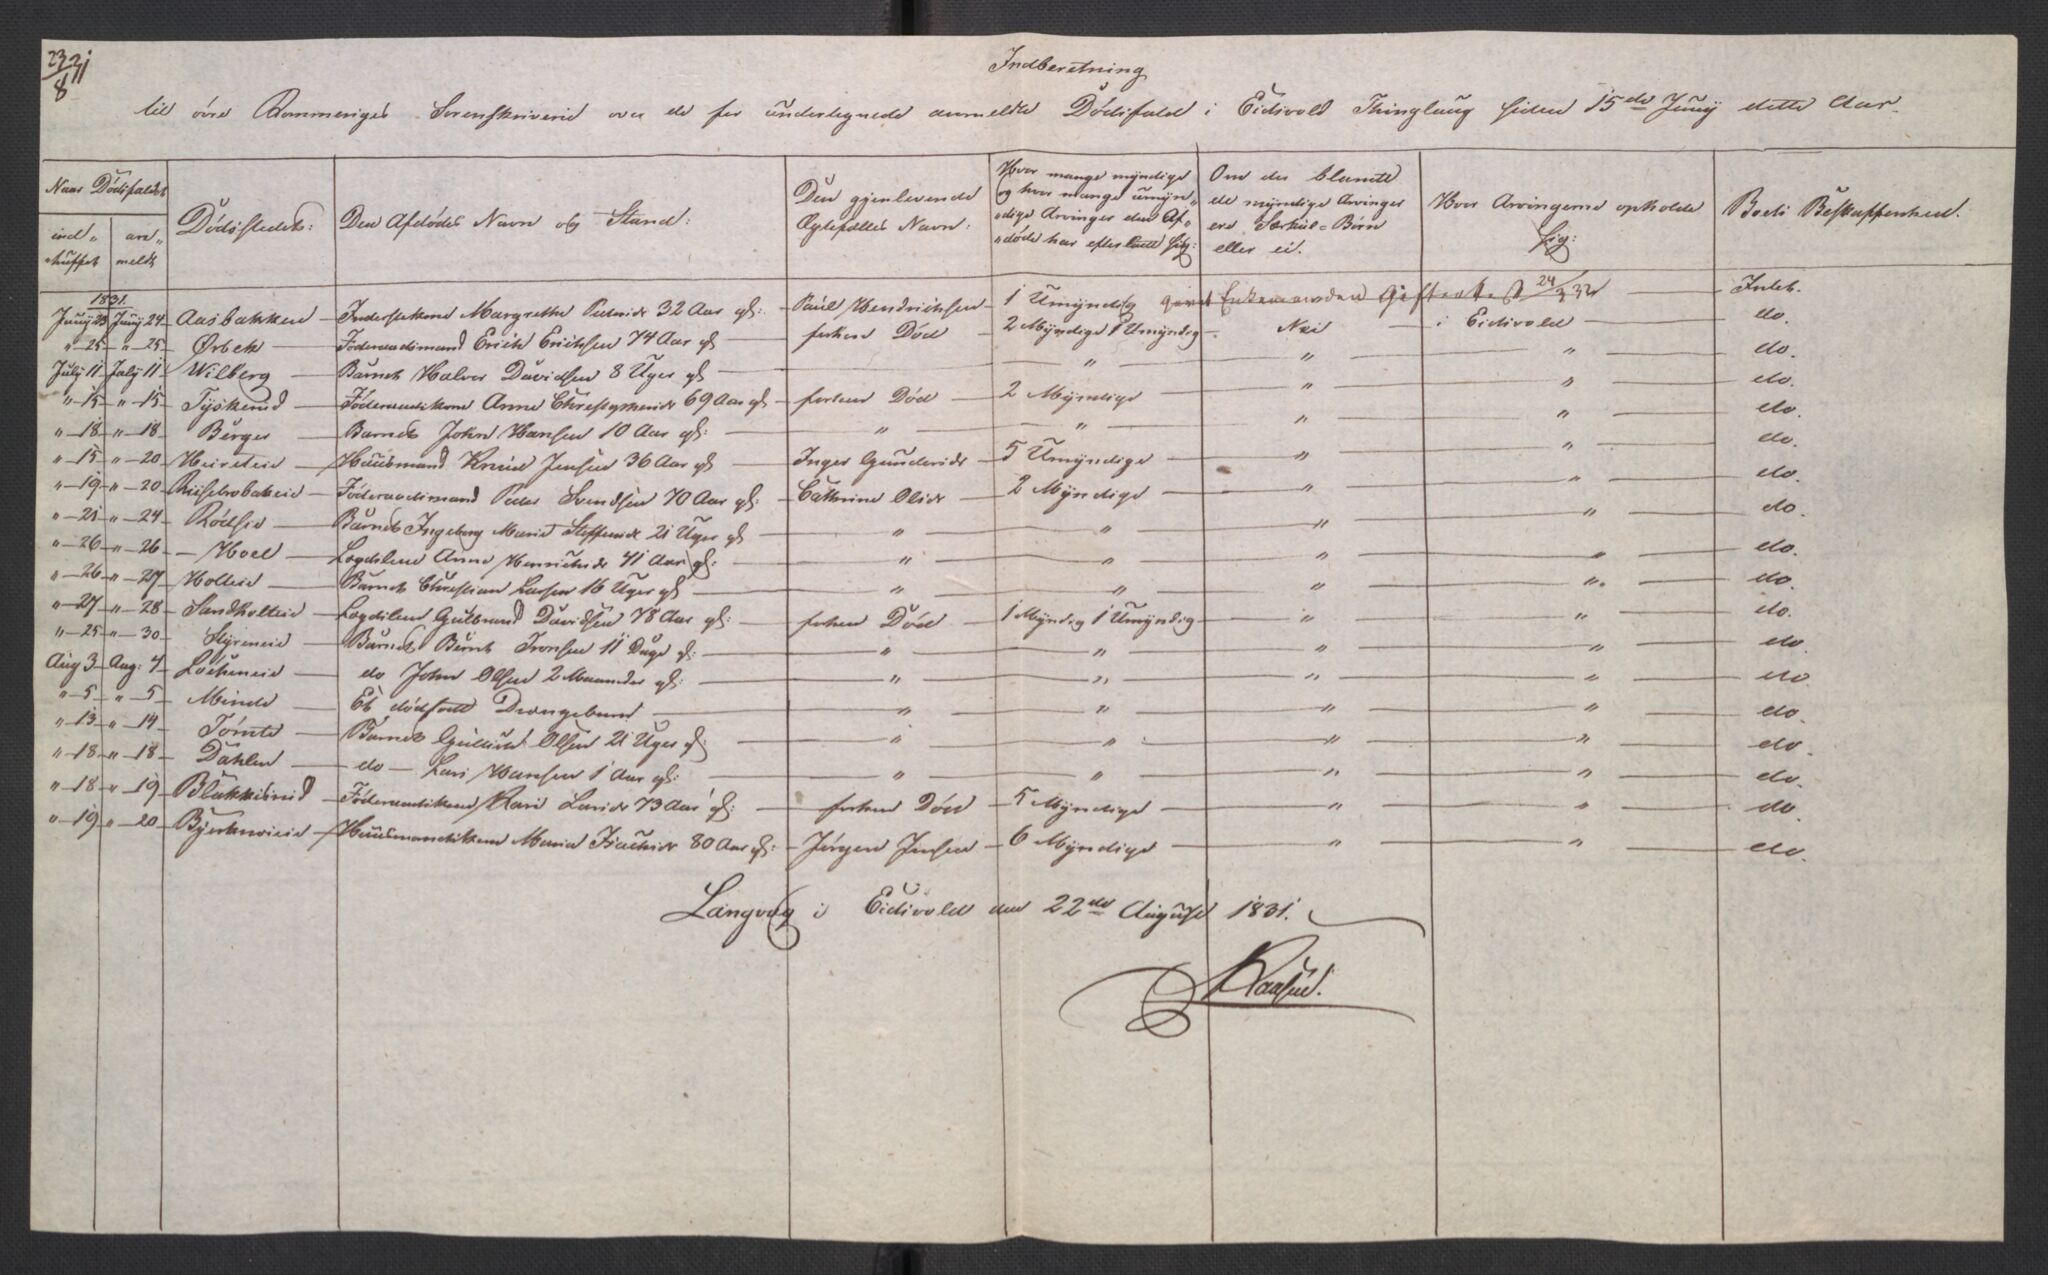 23/8 31
Indberetning
til øvre Rommeriges Sorenskriverie over de for undertegnede anmeldte Dödsfald i Eidsvold Thinglaug siden 15de Juny dette Aar.
Naar Dödsfaldet
ind-tuffet
an-meldt
Dödsstedets:
Den Afdödes Navn og Stand:
Den gjenlevende Ægtefælles Navn:
Hvor mange myndige og hvor mange umyn-dige Arvinger den Af-döde har efterladt sig:
Om der blandt de myndige Arvinger ere Særkul-Börn eller ei.
Hvor Arvingerne opholde sig:
Boets Beskaffenhed.
1831.
Juny 23 Juny 24 Aasbakken Inderstekone Margrethe Pedersdr 32 Aar gl: Paul Hendrichsen 1 Umyndig Enkemanden 24/3 32 Intet.
" 25 " 25 Ørbek Föderaadsmand Erich Erichsen 74 Aar gl forhen Död 2 Myndige 1 Umyndig Nei i Eidsvold do.
July 11 July 11 Wilberg Barnet Halvor Davidsen 8 Uger gl " " " do.
" 15 " 15 Tyskerud Föderaadskone Anne 69 Aar gl forhen Död 2 Myndige " " do.
" 18 " 18 Berger Barnet John Hansen 10 Aar gl: " " " " do.
" 15 " 20 Huusmand Knud Jensen 36 Aar gl Inger Gundersdr 5 Umyndige " " do.
" 19 " 20 Föderaadsmand Peder Svendsen 70 Aar gl: Cathrine Olsdr 2 Myndige " " do.
" 21 " 24 Rödsie Barnet Ingeborg Marie Steffensdr 21 Uger gl " " " " do.
" 26 " 26 Hoel Logdslem Anne Henrichsdr 41 Aar gl: " " " " do.
" 26 " 27 Holteie Barnet Christian Larsen 16 Uger gl " " " " do.
" 27 " 28 Sandholteie Logdslem Gulbrand Davidsen 78 Aar gl: forhen Död 1 Myndig 1 Umyndig " " do.
" 25 " 30 Styreneie Barnet Bernt Ironsen 11 Dage gl: " " " " do.
Aug 3 Aug: 4 Löckeneie do John Olsen 2 Maaneder gl: " " " " do
" 5 " 5 Minde Et dödfödt Drengebarn " " " " do.
" 13 " 14 Tömte Barnet Olsen 21 Uger gl: " " " " do.
" 18 " 18 Dahlen do Lars Hansen 1 Aar gl: " " " " do.
" 18 " 19 Blakkisrud Föderaadskone Kari Larsdr 73 Aar gl: forhen Död 5 Myndige " " do.
" 19 " 20 Huusmandskone Maria Isachsdr 80 Aar gl: Jörgen Jensen 6 Myndige " " do.
Langvag i Eidsvold den 22de August 1831.